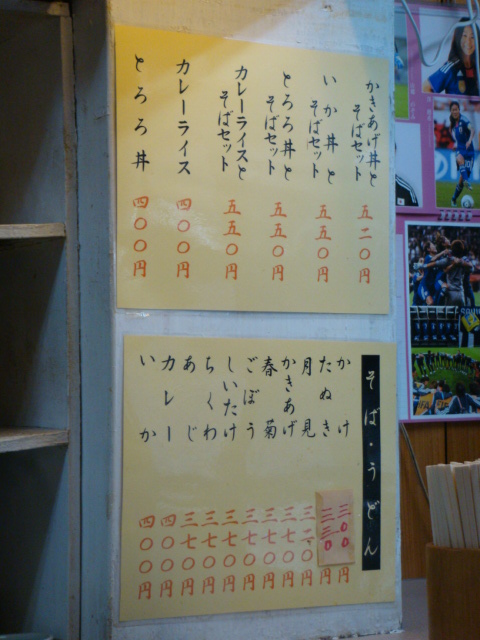 かきあげ丼と
そばセット
五二〇円
いか丼と
そばセット
五五〇円
とろろ丼と
そばセット
五五〇円
カレーライスと
そばセット
五五〇円
カレーライス 四〇〇円
とろろ丼 四〇〇円
そば・うどん
かけ 三〇〇円
たぬき 三三〇円
月見
かきあげ 三七〇円
春菊 三七〇円
ごぼう 三七〇円
しいたけ 三七〇円
ちくわ 三七〇円
あじ 三七〇円
カレー 四〇〇円
いか 四〇〇円